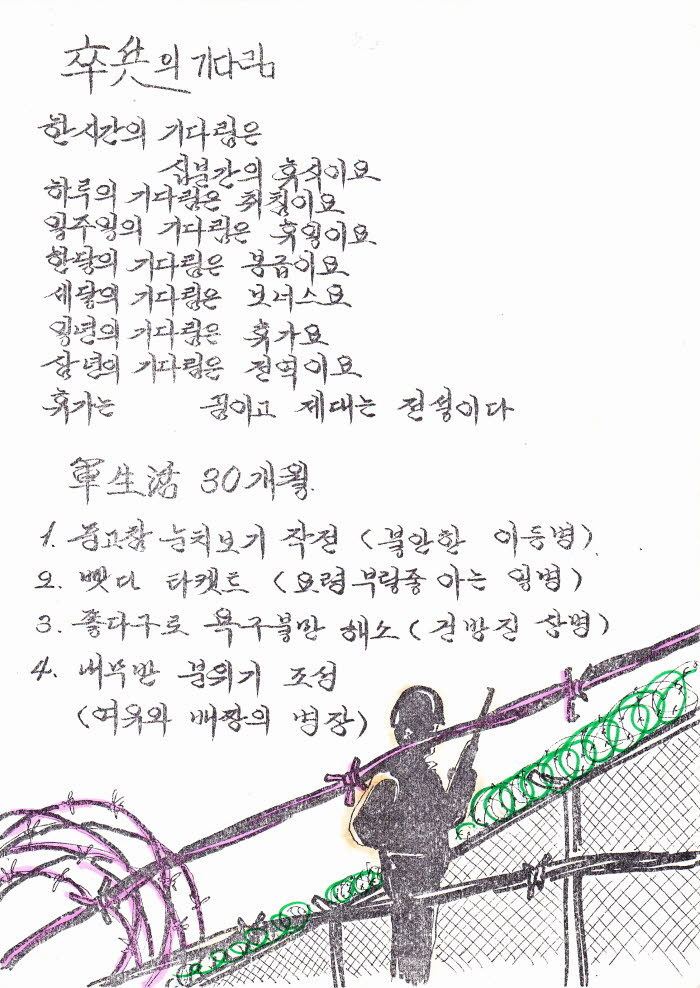 卒兵의 기다림
한시간의 기다림은
십분간의 휴식이요
하루의 기다림은 취침이요
일주일의 기다림은 휴일이요
한달의 기다림은 봉급이요
세달의 기다림은 보너스요
일년의 기다림은 휴가요
삼년의 기다림은 전역이요
휴가는 꿈이고 제대는 전설이다
軍生活 30개월
1. 중고참 눈치보기 작전 (불안한 이등병)
2. 뺏다 타켓트 (요령부릴줄 아는 일병)
3. 쫄다구로 욕구불만 해소 (건방진 상병)
4. 내무반 분위기 조성
(여유와 배짱의 병장)